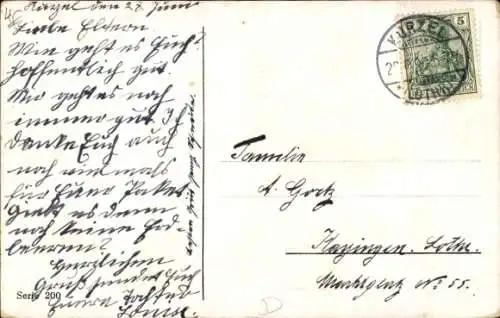 Kürzel den 27 Juni
Liebe Eltern
Wie geht es Euch?
hoffentlich gut.
Mir geht es noch
immer gut. Ich
danke Euch auch
noch vielmals
für Euer Paket
Giebt es denn
noch keine Erd-
beeren?
Herzlichen
Gruß sendet Euch
Euere Tochter
Louise.
Serie 200
KURZEL
LOTHR
5
Familie
A. Gortz
Hayingen. Lothr.
Marktplatz No 55.
D